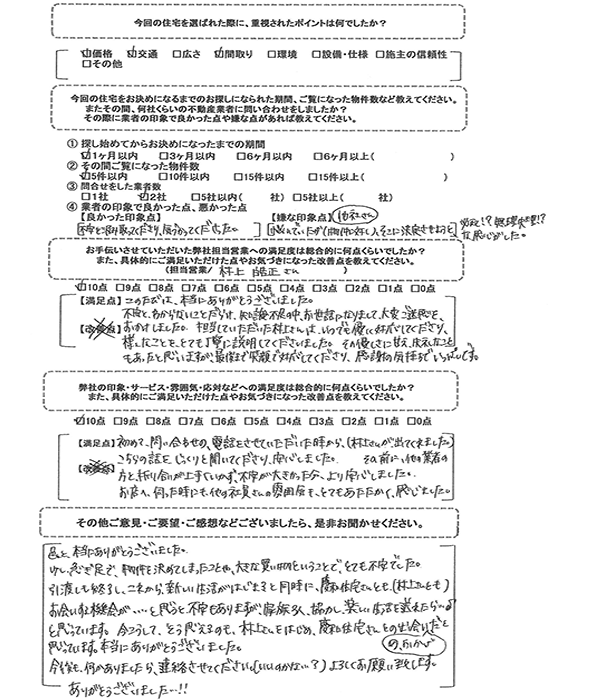 今回の住宅を選ばれた際に、重視されたポイントは何でしたか？
☑価格 ☑交通 □広さ ☑間取り □環境 □設備・仕様 □施主の信頼性
□その他
今回の住宅をお決めになるまでのお探しになられた期間、ご覧になった物件数など教えてください。
またその間、何社くらいの不動産業者に問い合わせをしましたか？
その際に業者の印象で良かった点や嫌な点があれば教えてください。
① 探し始めてからお決めになったまでの期間
☑1ヶ月以内 □3ヶ月以内 □6ヶ月以内 □6ヶ月以上( )
② その間ご覧になった物件数
☑5件以内 □10件以内 □15件以内 □15件以上( )
③ 問合せをした業者数
□1社 ☑2社 □5社以内( 社) □5社以上( 社)
④ 業者の印象で良かった点、悪かった点
【良かった印象点】 【嫌な印象点】 他社さん
不安を聞取ってくださり、
お手伝いさせていただいた弊社担当営業への満足度は総合的に何点くらいでしたか？
また、具体的にご満足いただけた点やお気づきになった改善点を教えてください。
(担当営業/ 村上 皓正 さん )
☑10点 □9点 □8点 □7点 □6点 □5点 □4点 □3点 □2点 □1点 □0点
【満足点】 このたびは、本当にありがとうございました。
不安と、わからないことだらけ、知識不足の中、お世話になりまして、大変ご迷惑を、
【改善点】 おかけしました。担当していただいた村上さんは、いつでも優しく対応してくださり、
たことを、とても丁寧に説明してくださいました。その優しさに甘え、失礼なことも
もあったと思いますが、最後まで笑顔で対応してくださり、感謝の気持ちでいっぱいです。
弊社の印象・サービス・雰囲気・応対などへの満足度は総合的に何点くらいでしたか？
また、具体的にご満足いただけた点やお気づきになった改善点を教えてください。
☑10点 □9点 □8点 □7点 □6点 □5点 □4点 □3点 □2点 □1点 □0点
【満足点】 初めて、問い合わせの、電話をさせていただいた時から、(村上さんが出てくれました)
こちらの話を、じっくりと聞いてくださり、安心しました。 その前に、他の業者の
【改善点】 方と、折り合いが上手くいかず、不安が大きかった分、より安心しました。
お店へ、伺った時にも、他の社員さんの雰囲気も、とてもあたたかく、感じました。
その他ご意見・ご要望・ご感想などございましたら、是非お聞かせください。
色々と、本当にありがとうございました。
急ぎ足で、物件を決めてしまったことや、大きな買い物ということで、とても不安でした。
引渡しも終了し、これから、新しい生活がはじまると同時に、住宅さんとも、(村上さんとも)
お会いする機会が、・・・と思うと不安もありますが、家族で、協力し、楽しい生活を送れたらいいな
と思っています。今こうして、そう思えるのも、村上さんをはじめ、住宅さんとの出会いだと
のおかげ
思っています。本当にありがとうございました。
今後も、何かありましたら、連絡させてください。(いいのかな…？) よろしくお願い致します。
ありがとうございました…!!